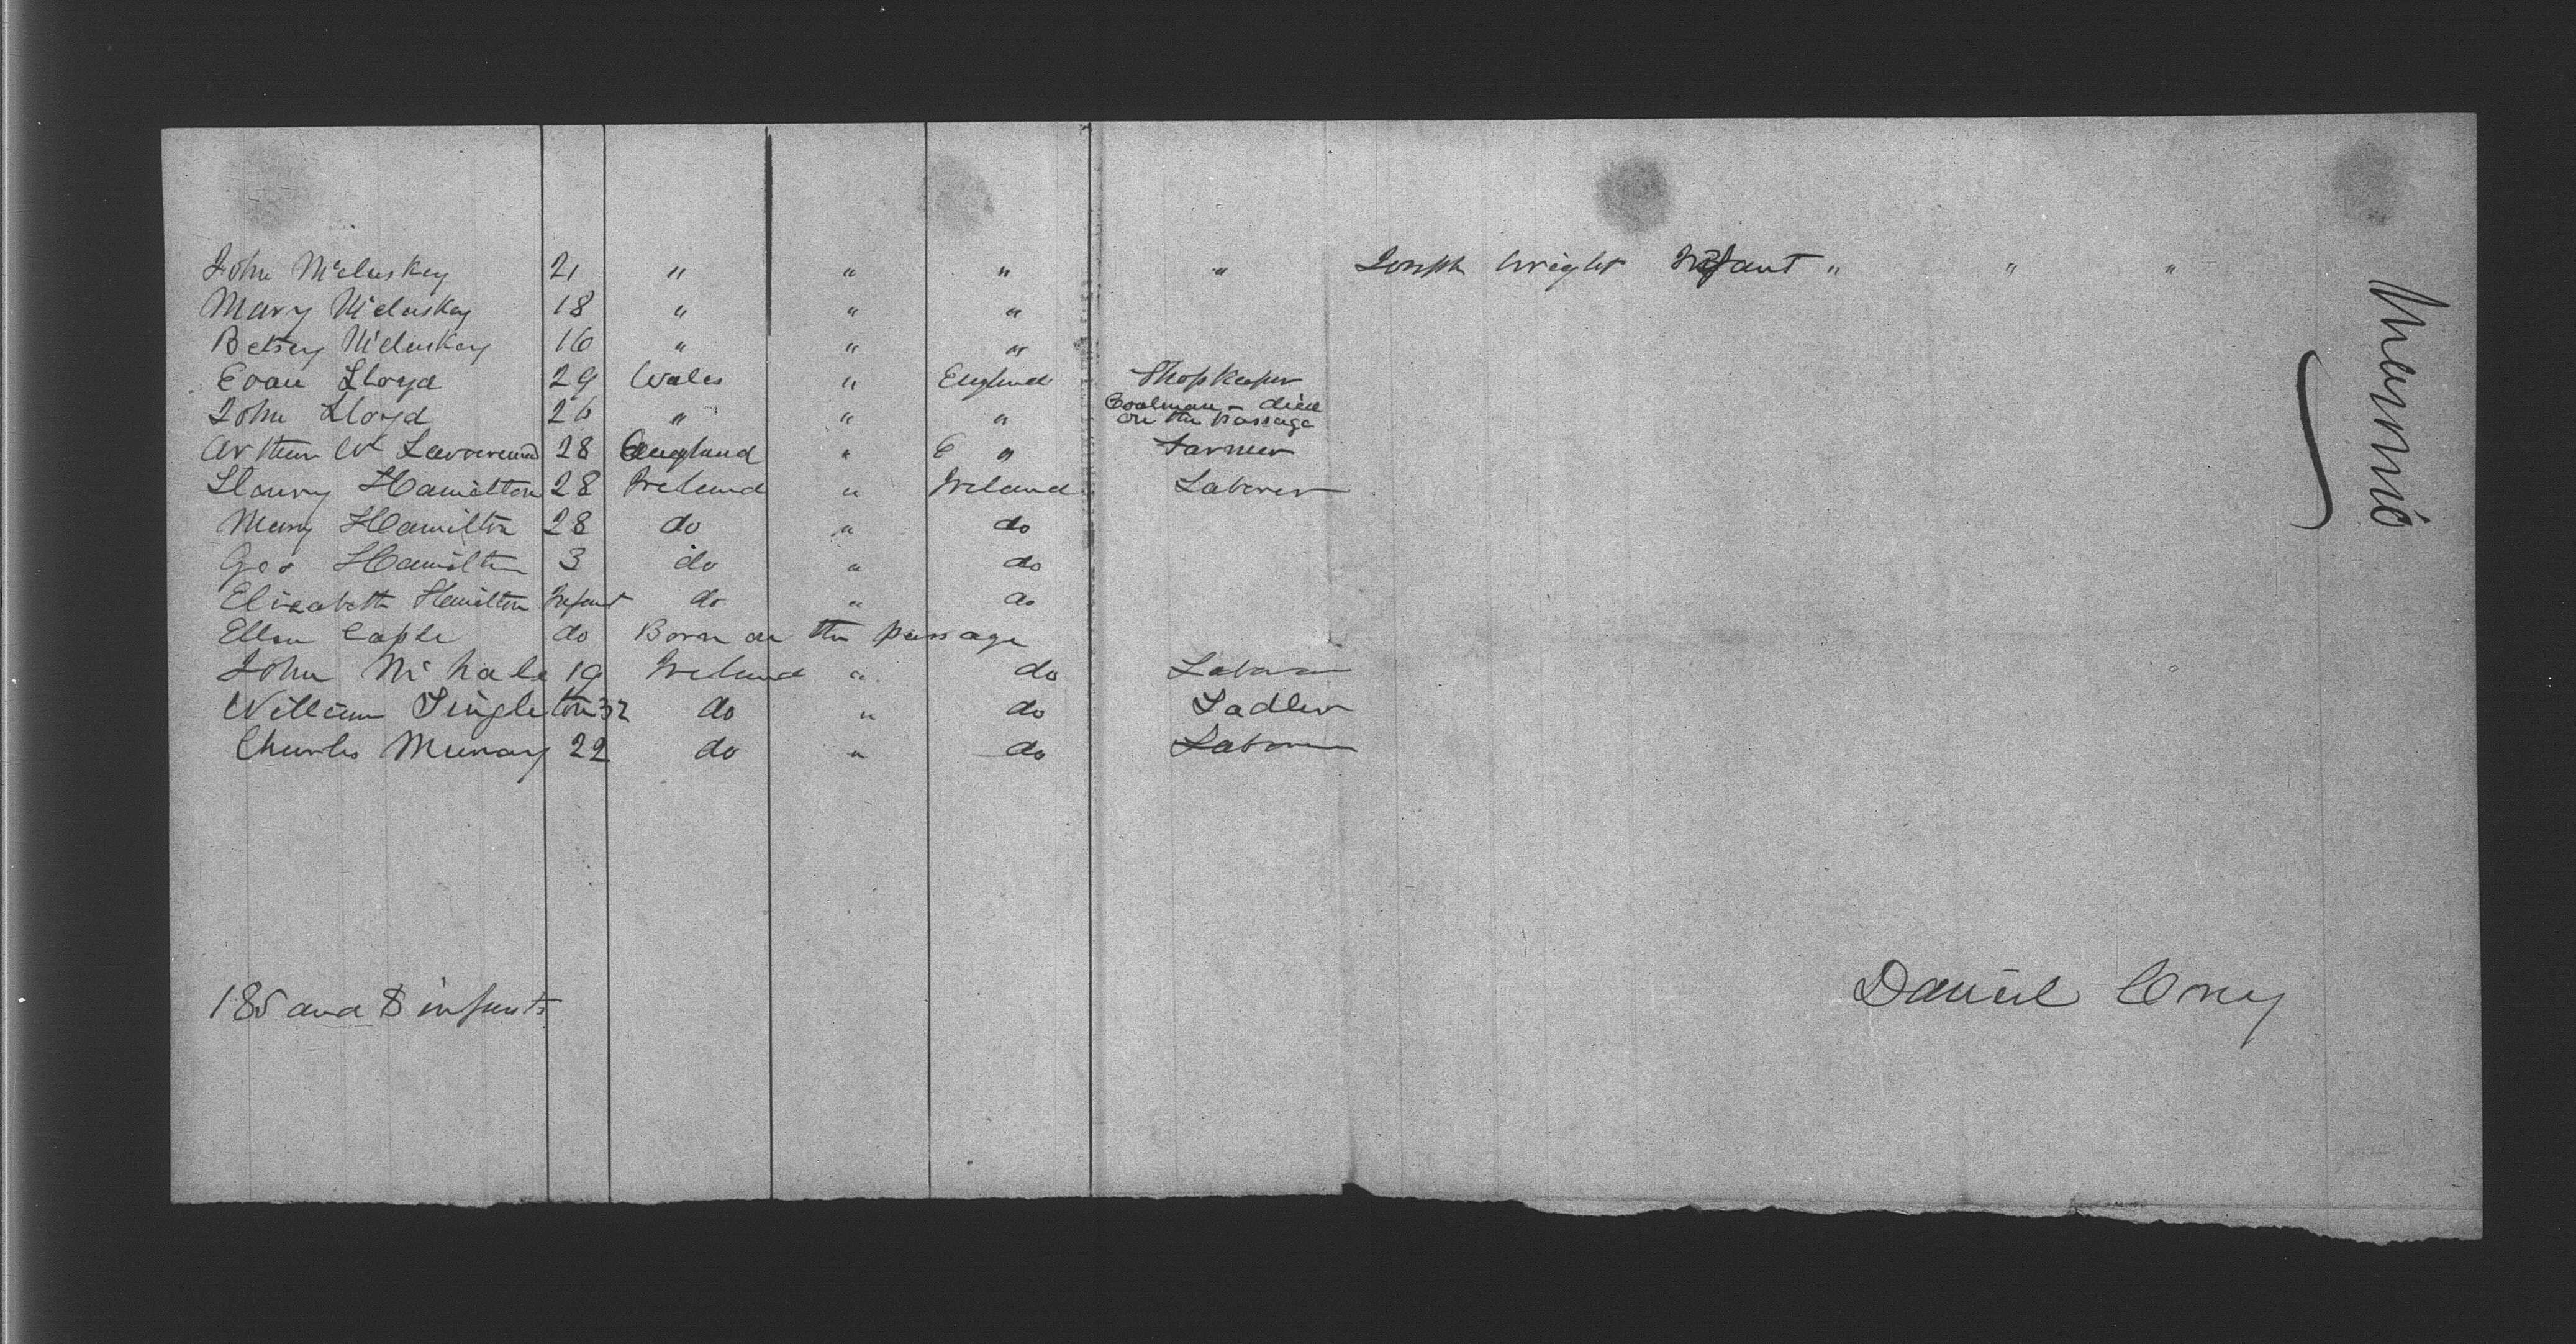 John McCluskey 21 " " " "
Mary McCluskey 18 " " "
Betsey McCluskey 16 " " "
Evan Lloyd 29 Wales " England Shopkeeper
John Lloyd 26 " " " Coalman - died on the passage
Arthur W 28 England " E " Farmer
Henry Hamilton 28 Ireland " Ireland Laborer
Mary Hamilton 28 do " do
Geo Hamilton 3 do " do
Elizabeth Hamilton Infant do " do
Ellen Caple do Born on the passage
John McHale 19 Ireland " do Laborer
William Singleton 32 do " do Sadler
Charles Murray 22 do " do Laborer
185 and 8 infants
Joseph Wright Infant " " "
Daniel